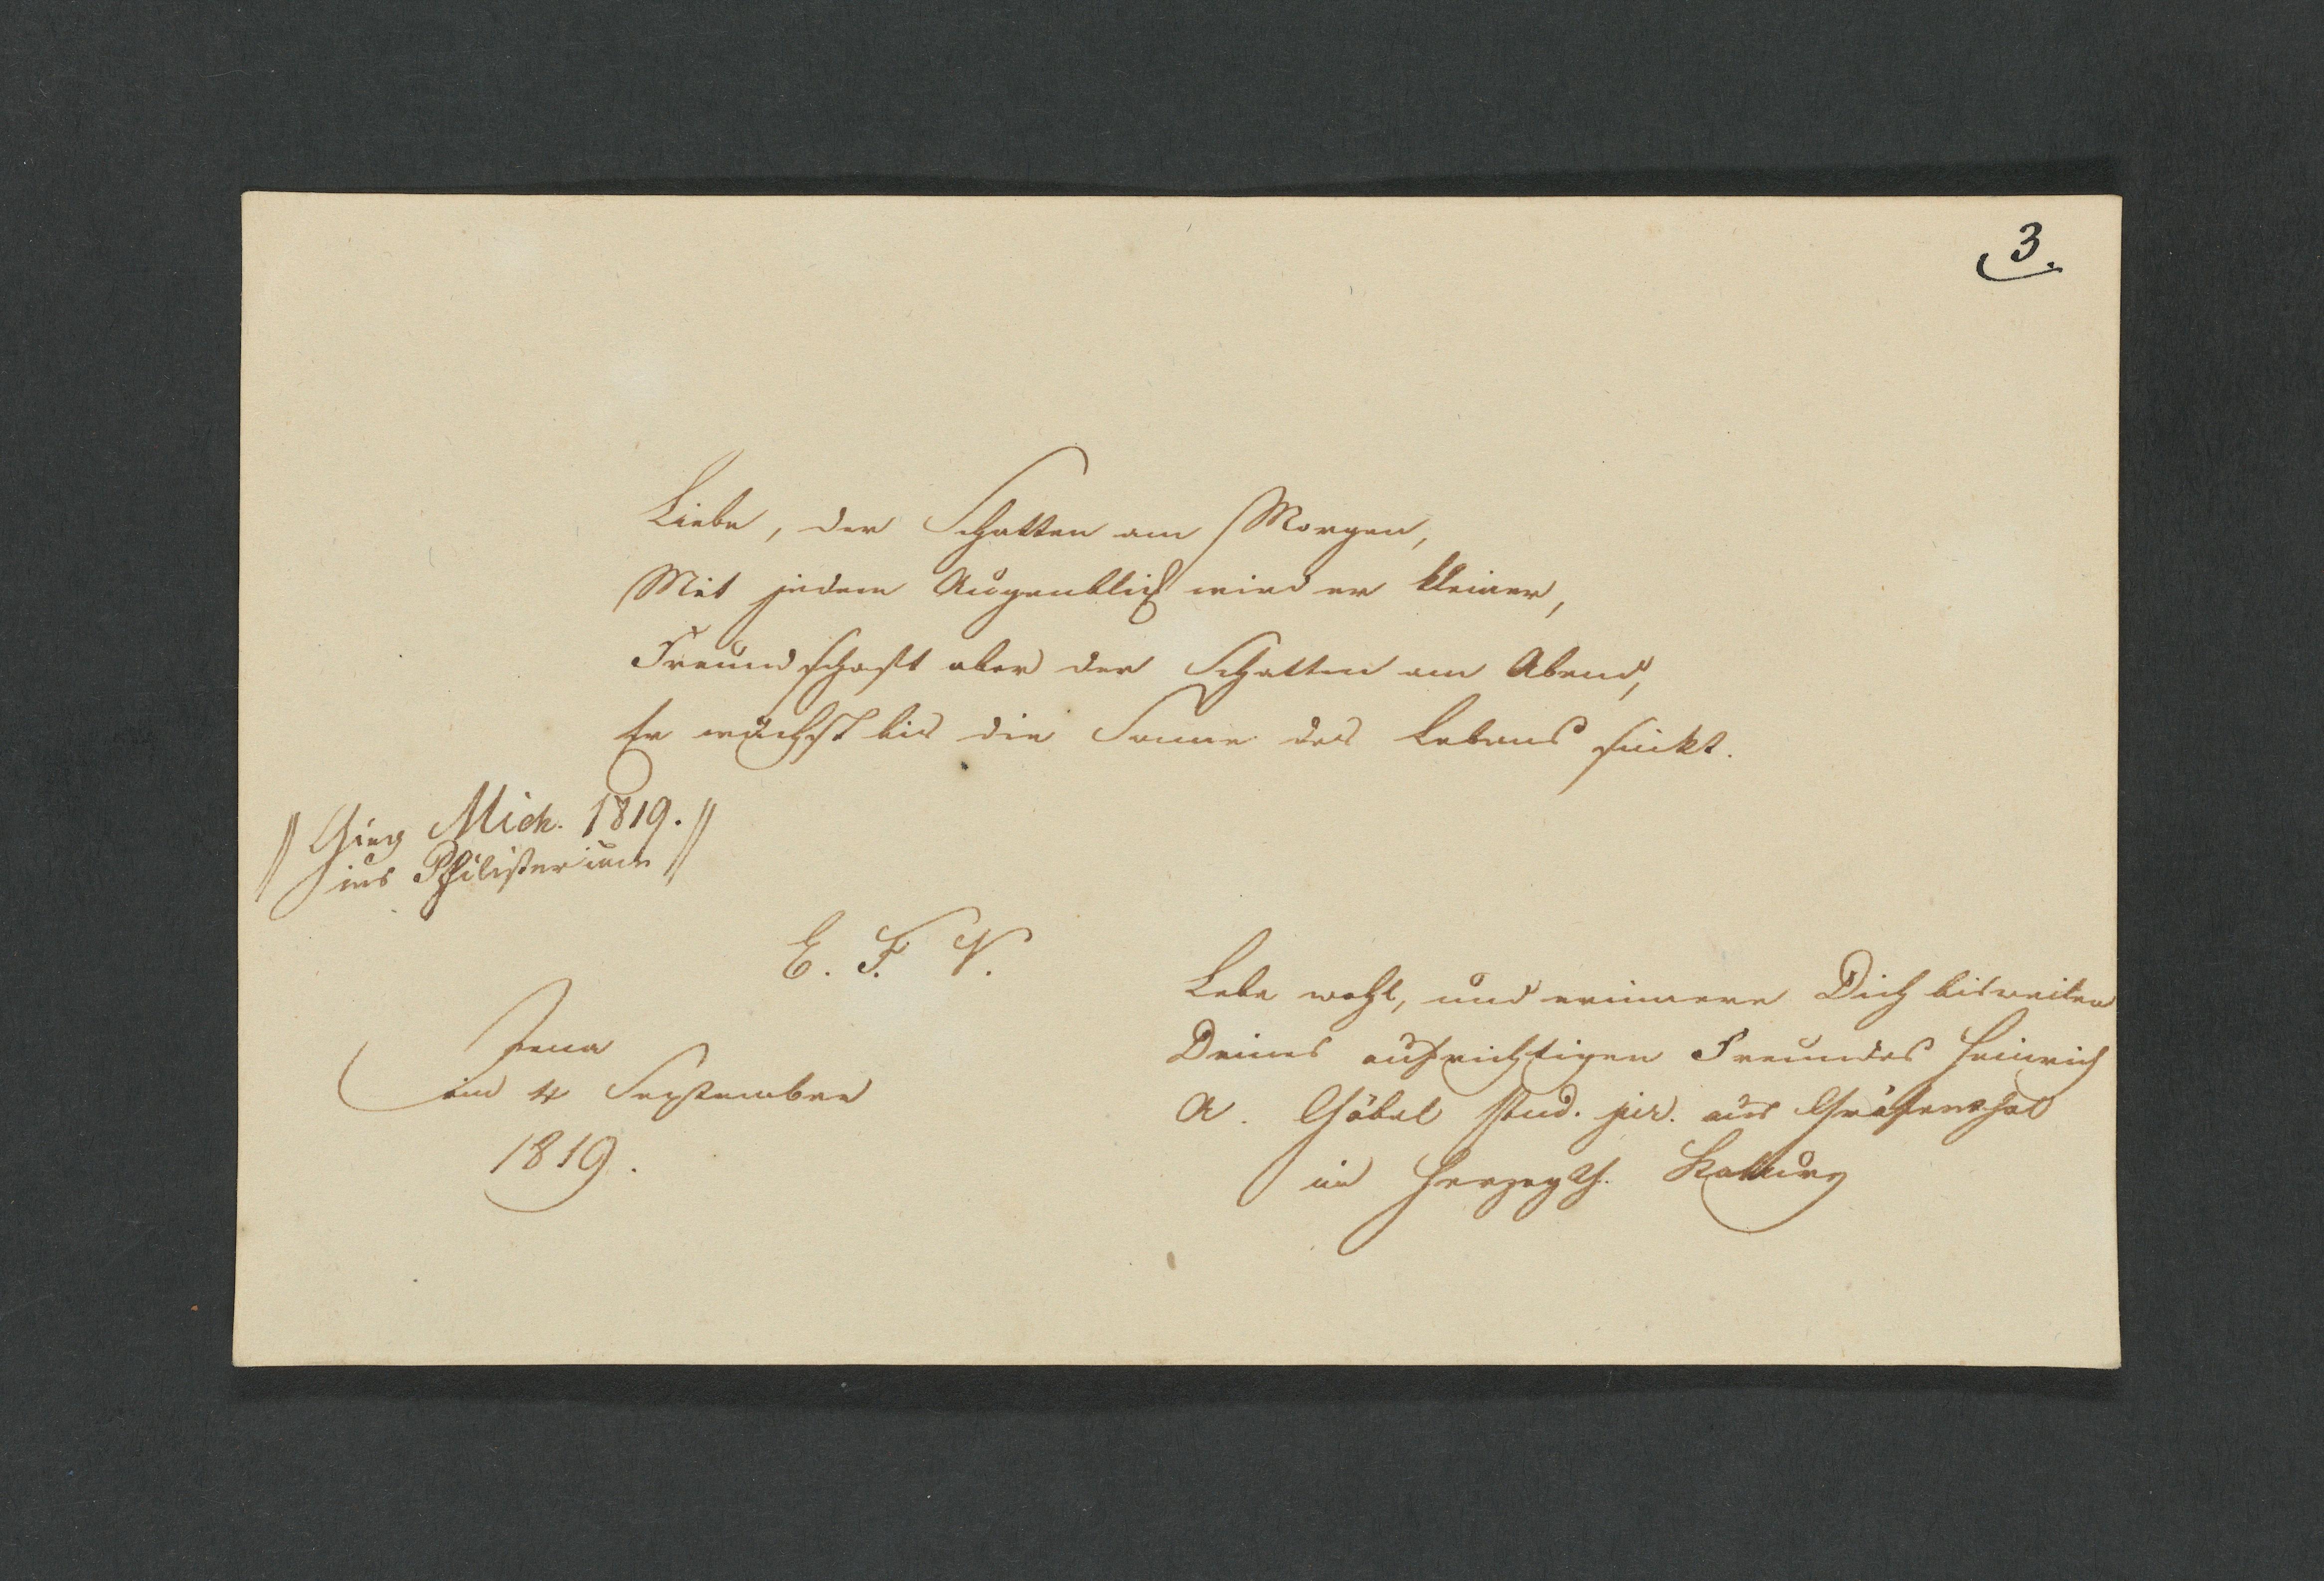 3.
Liebe, der Schatten am Morgen,
Mit jedem Augenblick wird er kleiner,
Freundschaft aber der Schatten am Abend,
Er wächst bis die Sonne des Lebens sinkt.
// Ging Mich. 1819. //
ins Philisterium
E. F. V.
Jena
im 4 September
1819.
Lebe wohl, und erinnere Dich bisweilen
Deines aufrichtigen Freundes Heinrich
A. Göbel stud. jur. aus Gräfenthal
im Herzogth.